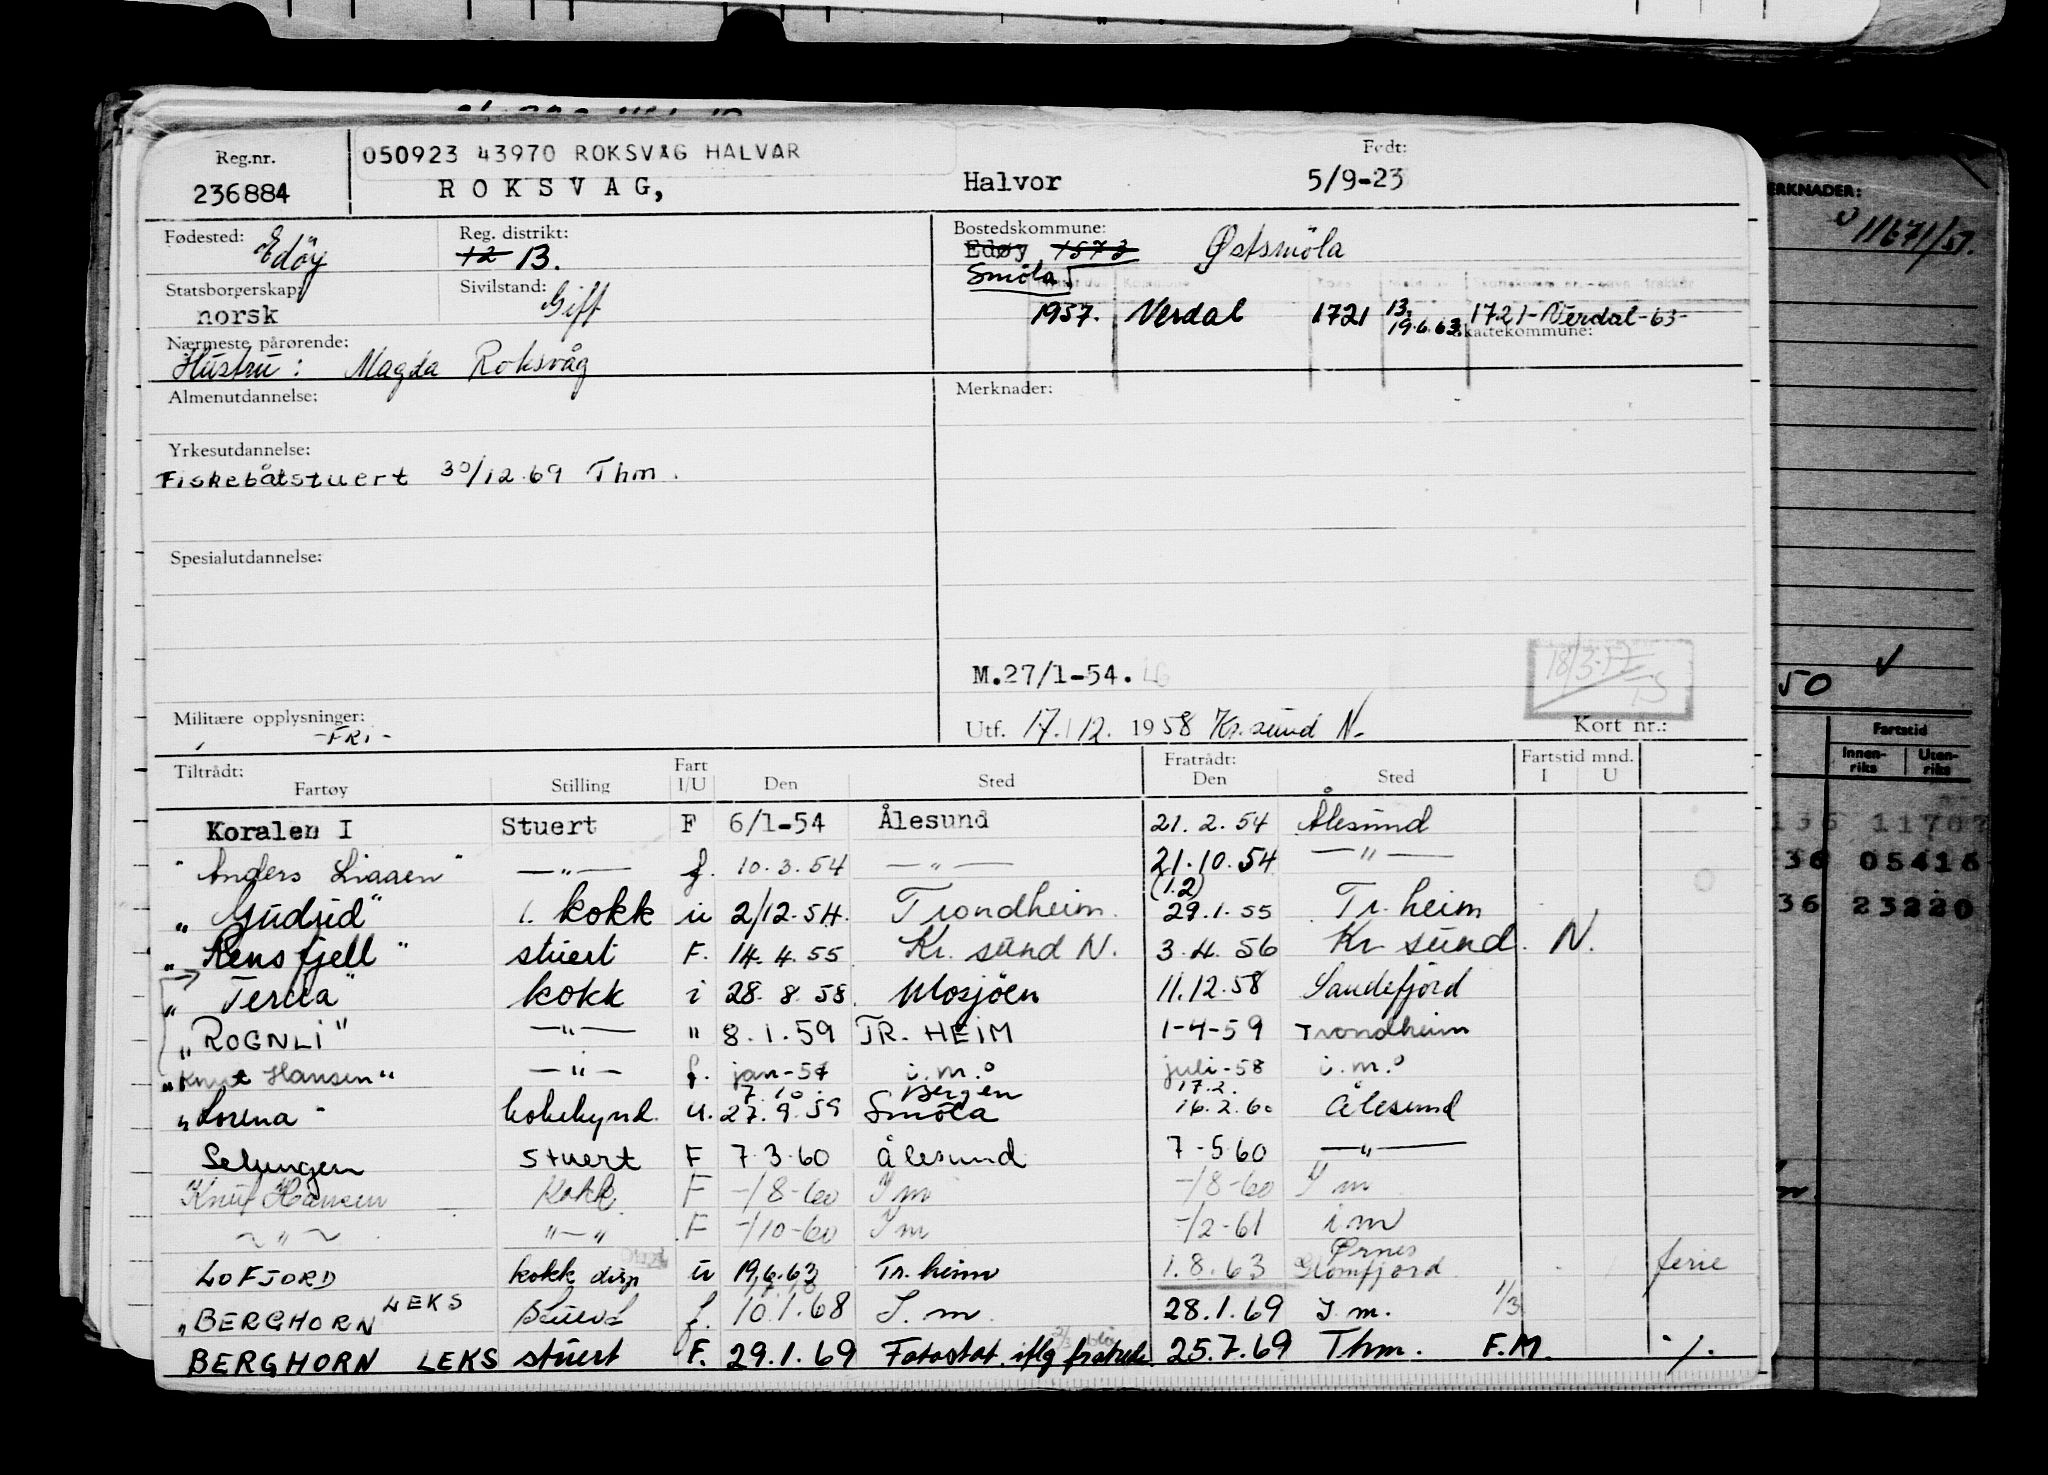 Reg.nr. 050923 43970 ROKSVÅG HALVAR Født:
236884 ROKSVAG, Halvor 5/9-23
Fødested: Edöy Reg. distrikt: 12 13. Bostedskommune: Edøy 1573 Østsmöla
Smöla
Statsborgerskap: norsk Sivilstand: Gift
1957. Verdal 1721 13. 19.6.63 1721-Verdal-63-
Skattekommune:
Nærmeste pårørende:
Hustru: Magda Roksvåg
Almenutdannelse: Merknader:
Yrkesutdannelse:
Fiskebåtstuert 30/12.69 Thm.
Spesialutdannelse:
M.27/1-54.
18/3-57
Militære opplysninger: -FRI- Utf. 17.12. 1958 Kr.sund N. Kort nr.:
Tiltrådt: Fart Fratrådt: Fartstid mnd.
Fartøy Stilling I/U Den Sted Den Sted I U
Koralen I Stuert F 6/1-54 Ålesund 21.2.54 Ålesund
"Anders Liaaen" —"— f. 10.3.54 —"— 21.10.54 —"—
(1.2)
"Gudrid" 1. kokk u 2/12.54. Trondheim. 29.1.55 Tr. heim
"Rensfjell" stuert F. 14.4.55 Kr. sund N. 3.4.56 Kr sund. N.
"Terna" kokk i 28.8.58. Mosjöen 11.12.58 Sandefjord
"ROGNLI" —"— " 8.1.59 TR. HEIM 1-4-59 Trondheim
"Knut Hansen" —"— f. jan-57 i.m. juli-58 i.m.
7.10. Bergen 17.2.
"Lorena" u. 27.9.59 Smöla 16.2.60 Ålesund
Selungen Stuert F 7.3.60 Ålesund 7-5.60 —"—
Knut Hansen Kokk F -/8-60 I m -/8-60 I m
~ " ~ "—" F -/10-60 I m -/2-61 i.m
Ørnes
LOFJORD kokk disp u 19.6.63 Tr. heim 1.8.63 Glomfjord ferie
"BERGHORN LEKS Stuert f. 10.1.68 I. m. 28.1.69 I. m. 1/3
BERGHORN LEKS stuert F. 29.1.69 Fotostat. iflg fratrede. 25.7.69 Thm. F.M. ·/.
MERKNADER:
11671/57.
50
Fartstid
Innen-riks Uten-riks
136 11707
36 05416
36 23220